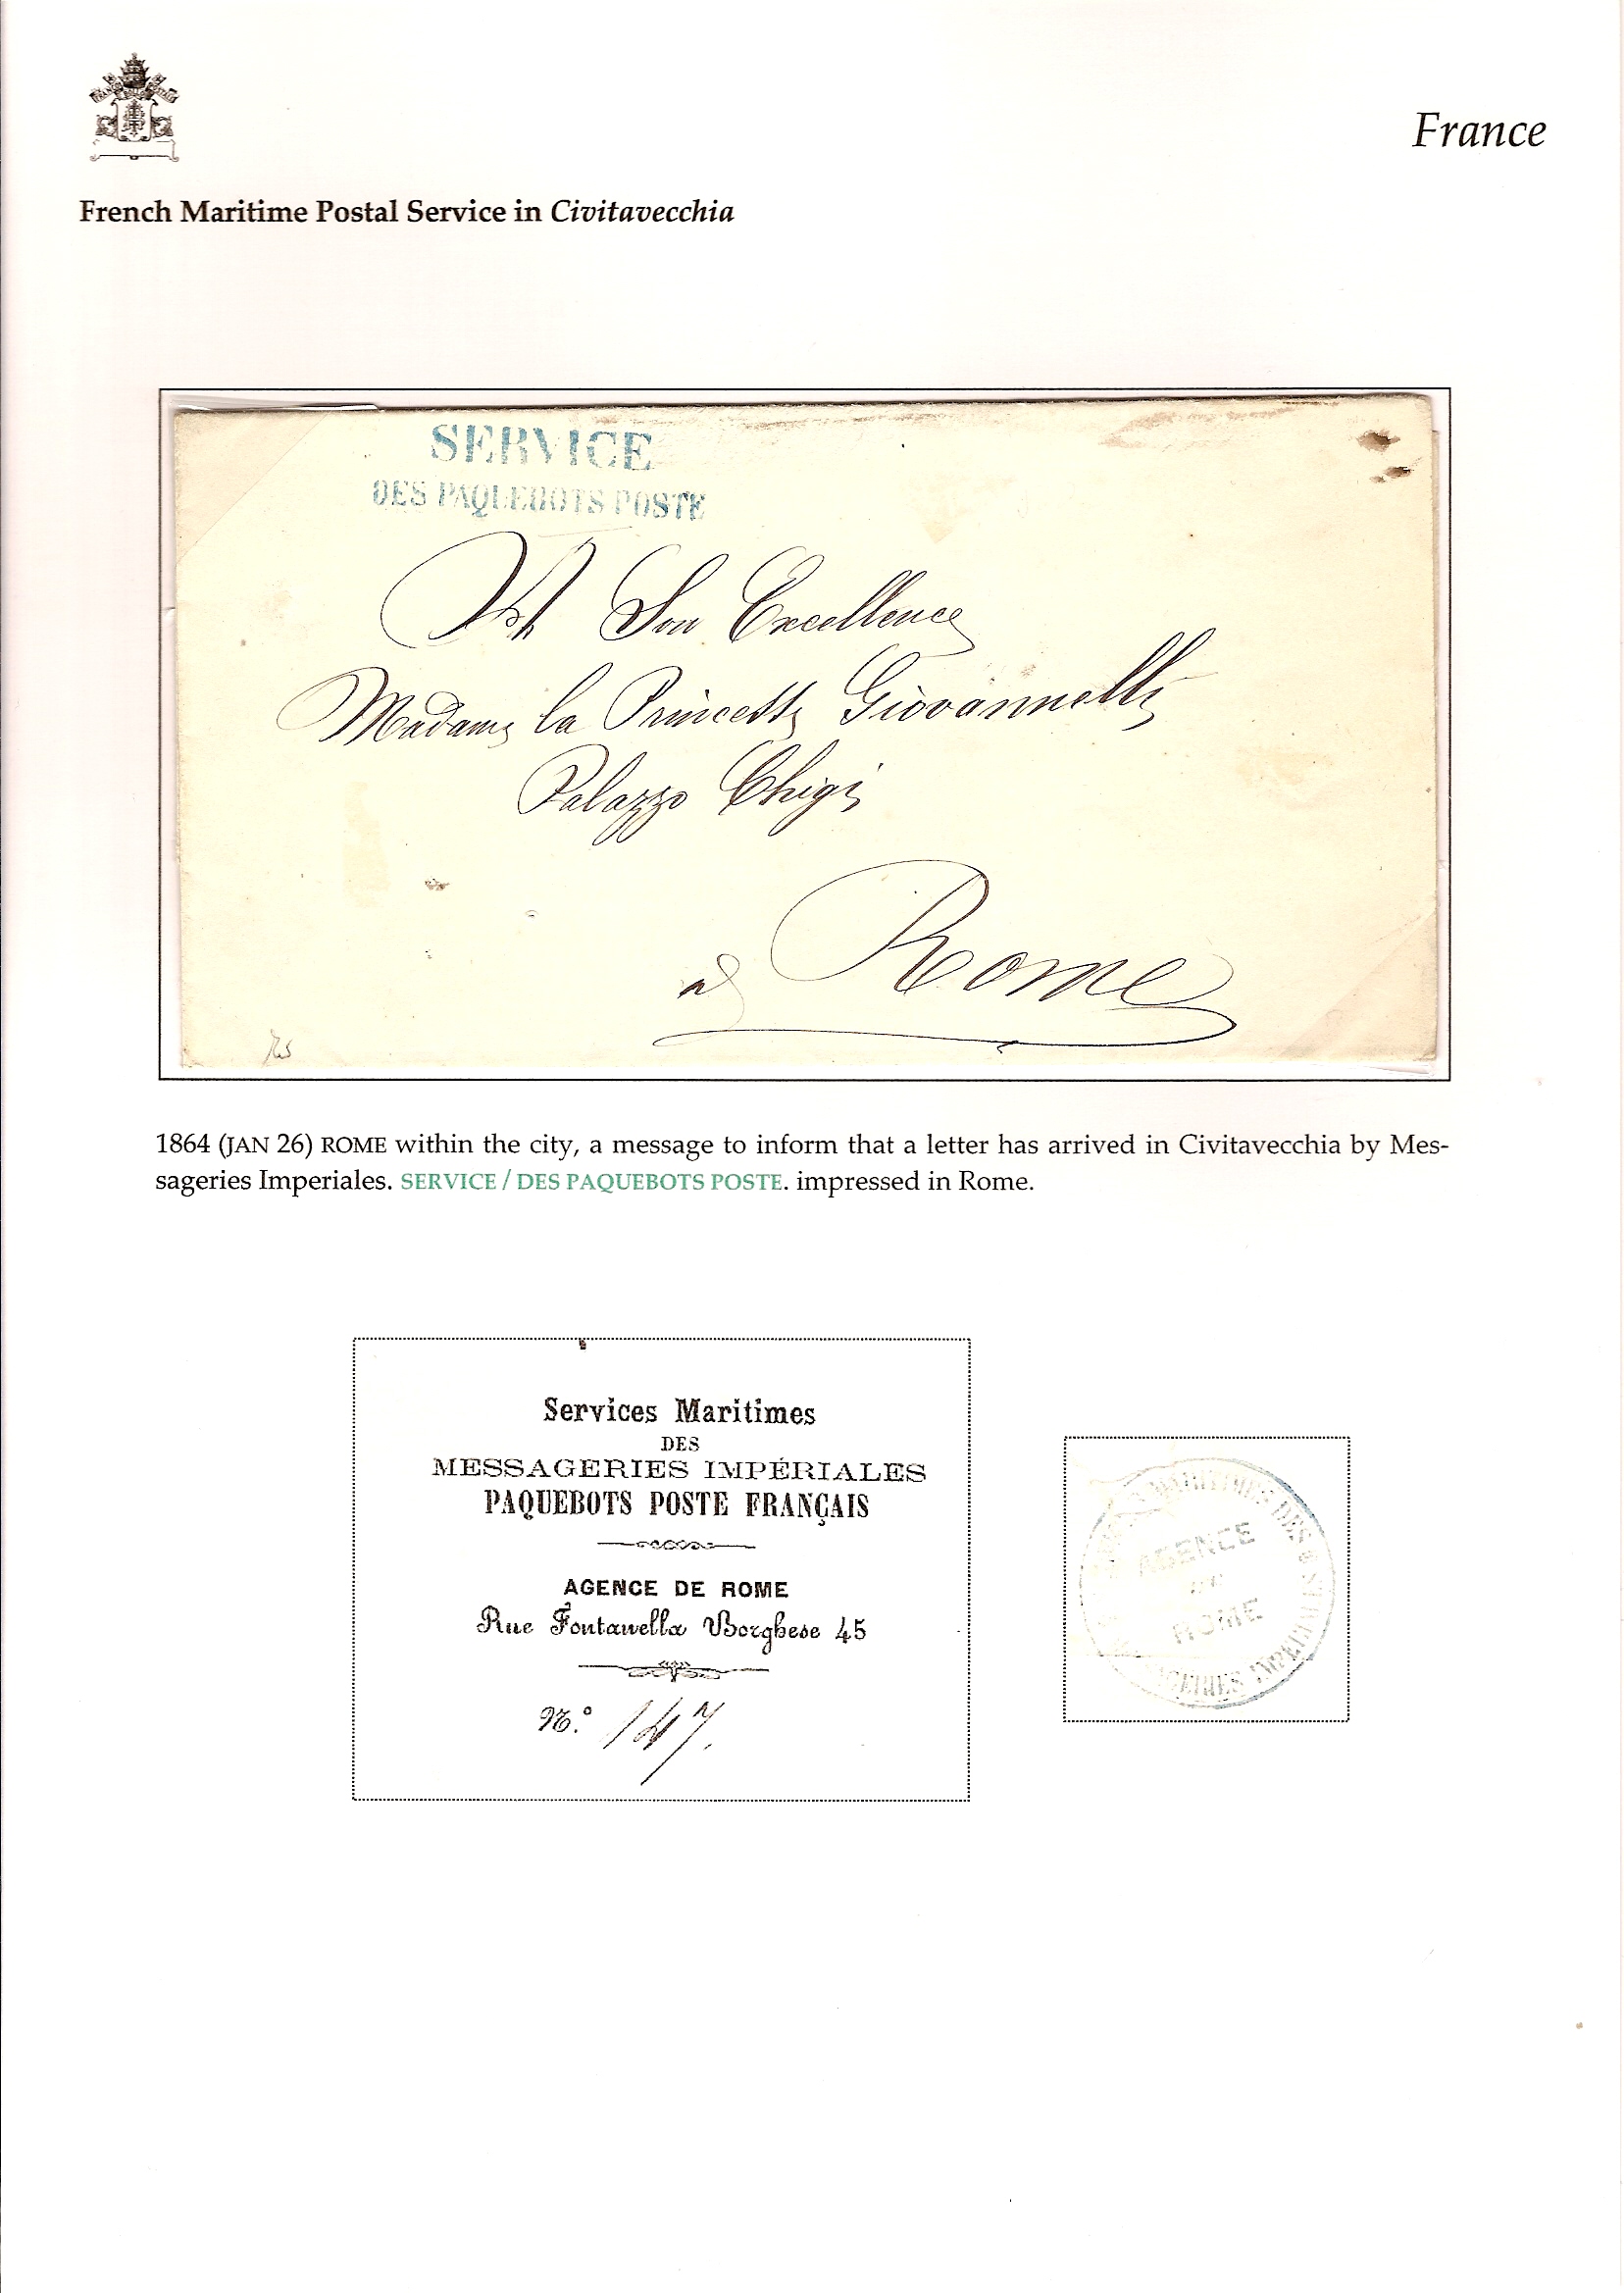 France
French Maritime Postal Service in Civitavecchia
SERVICE
DES PAQUEBOTS POSTE
A Son Excellence
Madame la Princesse Giovannelli
Palazzo Chigi
à Rome
1864 (JAN 26) ROME within the city, a message to inform that a letter has arrived in Civitavecchia by Mes-
sageries Imperiales. SERVICE / DES PAQUEBOTS POSTE. impressed in Rome.
Services Maritimes
DES
MESSAGERIES IMPÉRIALES
PAQUEBOTS POSTE FRANÇAIS
AGENCE DE ROME
Rue Fontanella Borghese 45
N.° 147.
MARITIMES DES
AGENCE
ROME